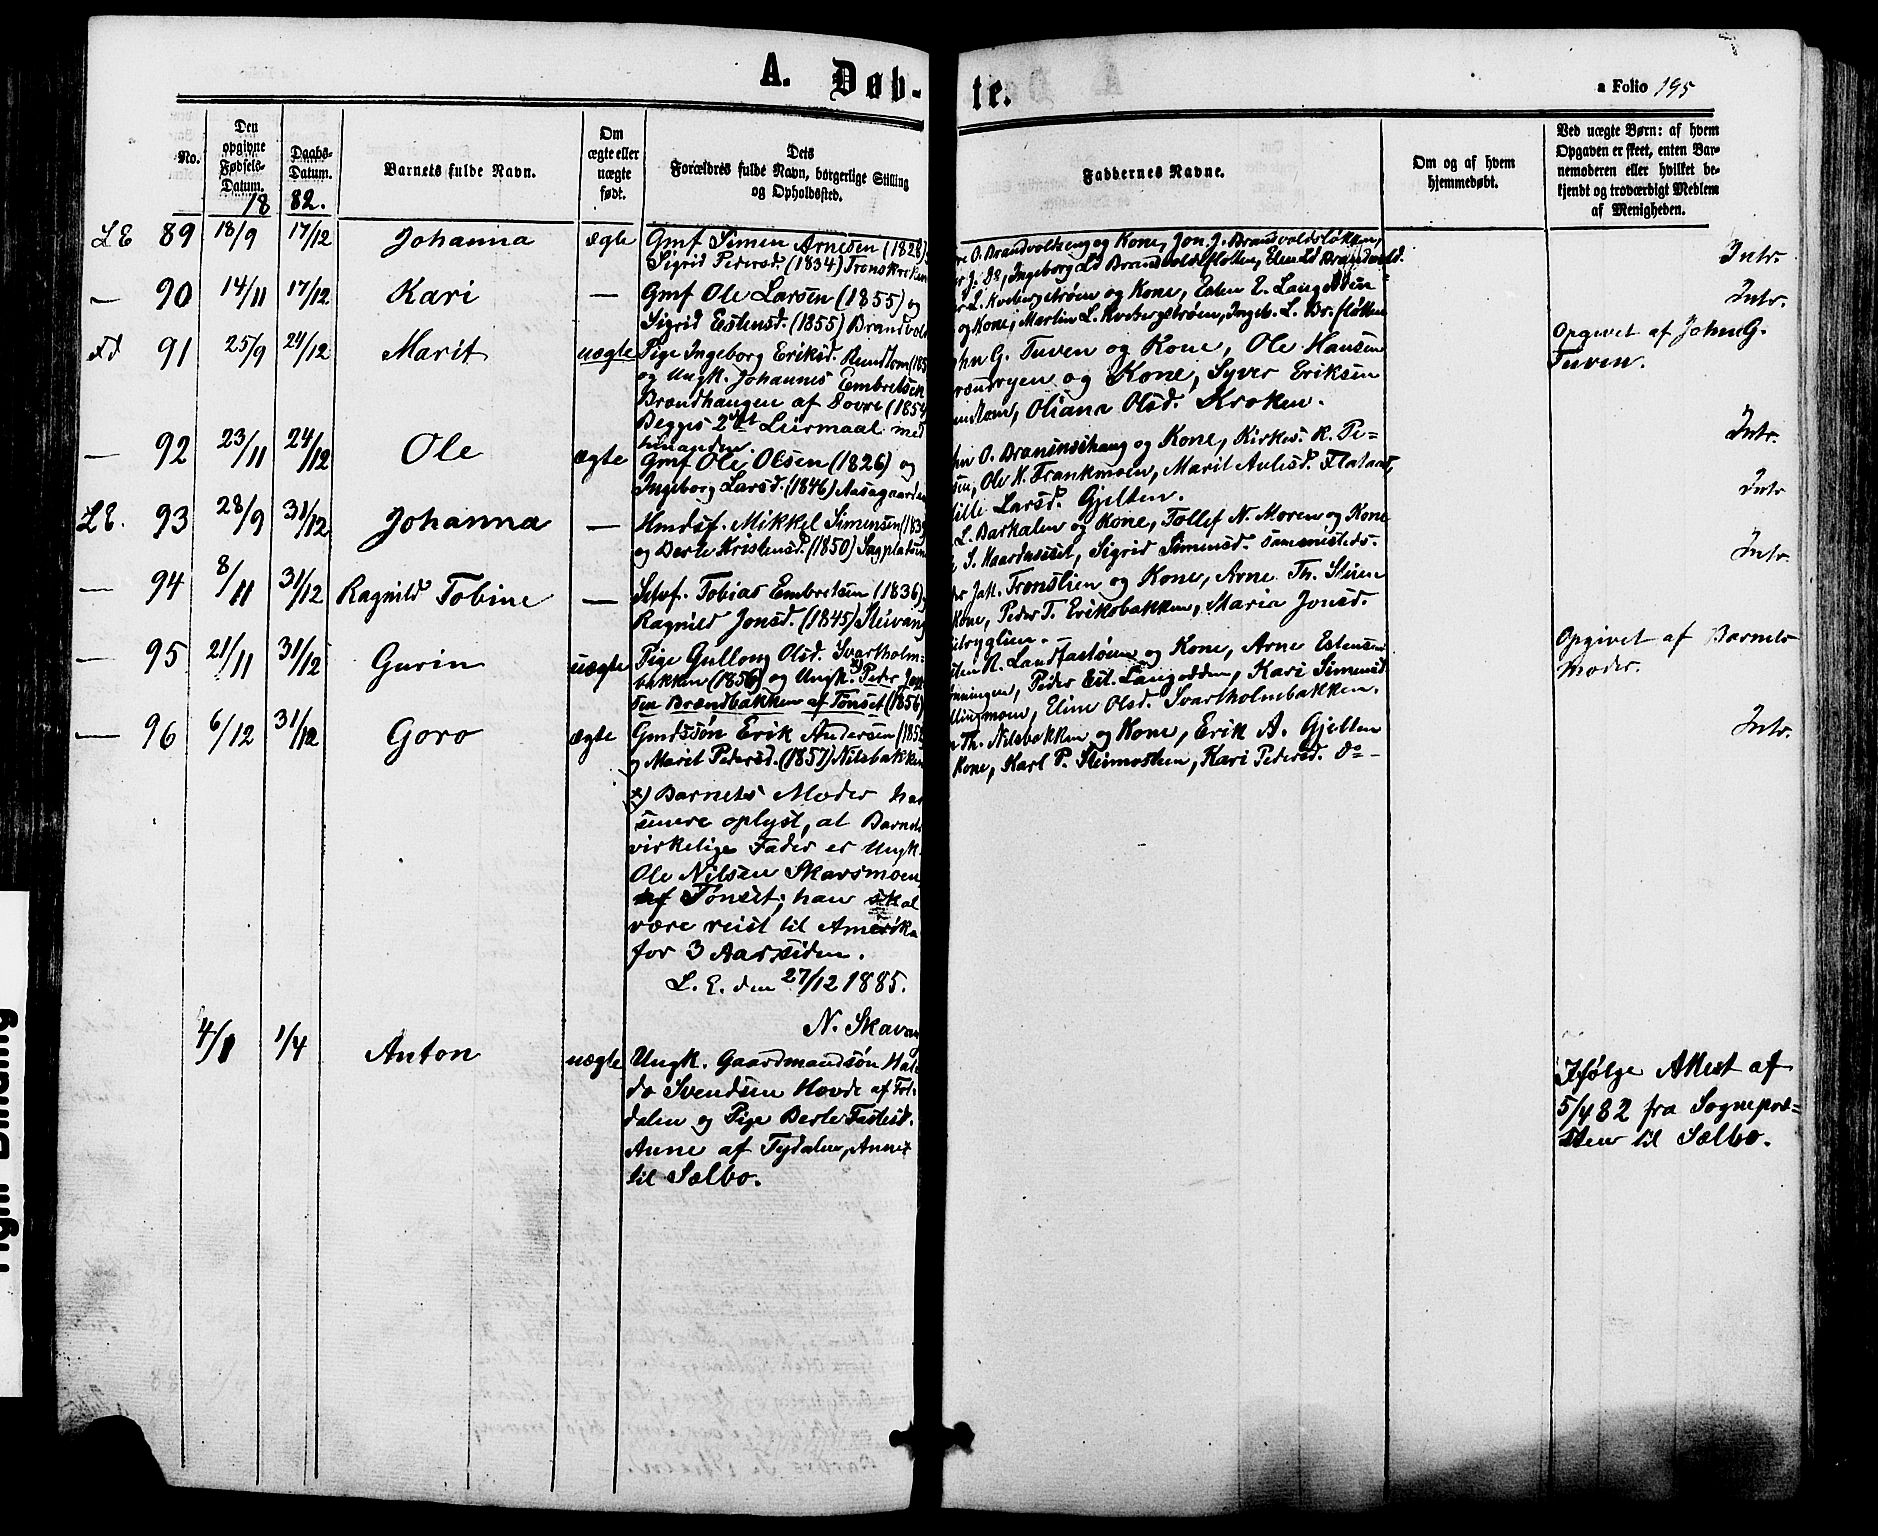 A. Døb-
te.
a Folio 195
No.
Den opgivne Fødsels-Datum.
Daabs-Datum.
18 82.
Barnets fulde Navn.
Om ægte eller uægte født.
Dets
Forældres fulde Navn, borgerlige Stilling
og Opholdssted.
Faddernes Navne.
Om og af hvem
hjemmedøbt.
Ved uægte Børn: af hvem
Opgaven er skeet, enten Bar-
nemoderen eller hvilket be-
kjendt og troværdigt Medlem
af Menigheden.
LE 89 18/9 17/12 Johanna ægte Gmf Simen Arnesen (1828)
Sigrid Pedersd. (1834) Tronskroken
O. Brandvoldseng og Kone, Jon J. Brandvoldsløkken,
J. Do, Ingeborg Ld Brandvoldsfløtten, Elen Ld Brandvold.
Intr.
— 90 14/11 17/12 Kari — Gmf Ole Larsen (1855) og
Sigrid Estensd. (1855) Brandvold
L. Kvebergstrøen og Kone, Esten E. Langodden
og Kone, Martin L. Kvebergstrøen, Ingeb. L. Br.fløtten
Intr.
Fd 91 25/9 24/12 Marit uægte Pige Ingeborg Eriksd. Rundtom (185
og Ungk. Johannes Embretsen
Brændhaugen af Dovre (1854)
Begges 2det Leiermaal med
hinanden.
hn G. Tuven og Kone, Ole Hansen
og Kone, Syver Eriksen
Oliana Olsd. Kroken.
Opgivet af John G.
Tuven.
— 92 23/11 24/12 Ole ægte Gmf Ole Olsen (1826) og
Ingeborg Larsd. (1846) Aasegaarden
hn O. Bransnshaug og Kone, Kirkes. R. Pe-
sen, Ole H. Trankmoen, Marit Axelsd. Flataas,
Larsd. Gjelten.
Intr.
LE. 93 28/9 31/12 Johanna — Hmdsf. Mikkel Simensen (183
og Berte Kristensd. (1850) Sagpladsen
L. Barkalen og Kone, Tollef N. Moren og Kone
S. Haardnesset, Sigrid Simensd. sammesteds.
Intr
— 94 8/11 31/12 Ragnild Tobine — Selvf. Tobias Embretsen (1836)
Ragnild Jonsd. (1845) Steivang
Jak. Tronslien og Kone, Arne Th. Steien
Kone, Peder T. Eriksbakken, Maria Jonsd.
Intr.
— 95 21/11 31/12 Gurin uægte Pige Gullong Olsd. Svartholm-
bakken (1856) og Ungk. x) Peder Jon
sen Brændbakken af Tønset (1856)
N. Landfastøien og Kone, Arne Estensen
Rønningen, Peder Est. Langodden, Kari Simensd
Eline Olsd. Svartholmbakken.
Opgivet af Barnets
Moder.
— 96 6/12 31/12 Goro ægte Gmdssøn Erik Andersen (185
og Marit Pedersd. (1857) Nilsbakken
Th. Nilsbakken og Kone, Erik A. Gjelten
Kone, Karl P. Steimoslien, Kari Pedersd. Do —
Intr.
x) Barnets Moder har
senere oplyst, at Barnets
virkelige Fader er Ungk.
Ole Nilsen Skarsmoen
af Tønset; han skal
være reist til Amerika
for 3 Aar siden.
L. E. den 27/12 1885.
N. Skavan
4/1 1/4 Anton uægte Ungk. Gaardmandsøn Hal
do Svendsen Hovde af
dalen og Pige Berte
Anne af Tydalen, Annex
til Sælbo.
Ifølge Attest af
5/4 82 fra Sognepræ-
sten til Sælbo.
Right Binding